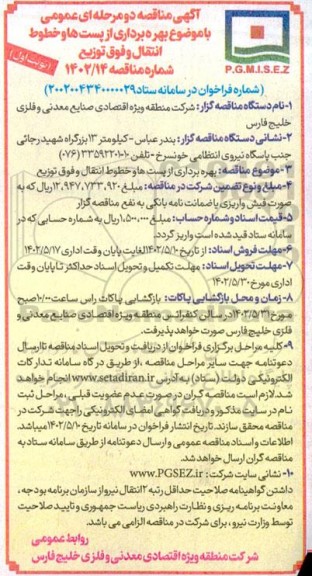 آگهی مناقصه دو مرحله ای عمومی
با موضوع بهره برداری از پست ها و خطوط
انتقال و فوق توزیع
شماره مناقصه ۱۴۰۲/۱۴
(نوبت اول)
P.G.M.I.S.E.Z
(شماره فراخوان در سامانه ستاد ۲۰۰۲۰۰۴۳۴۰۰۰۰۰۲۹)
۱-نام دستگاه مناقصه گزار: شرکت منطقه ویژه اقتصادی صنایع معدنی و فلزی
خلیج فارس
۲-نشانی دستگاه مناقصه گزار: بندر عباس - کیلومتر ۱۳ بزرگراه شهید رجائی
جنب پاسگاه نیروی انتظامی خونسرخ - تلفن ۲-۳۳۵۹۲۲۰۱ (۰۷۶)
۳-موضوع مناقصه: بهره برداری از پست ها و خطوط انتقال و فوق توزیع
۴-مبلغ و نوع تضمین شرکت در مناقصه: مبلغ ۱۲،۹۴۷،۷۳۳،۹۲۰ ریال که به
صورت فیش واریزی یا ضمانت نامه بانکی به نفع مناقصه گزار
۵-قیمت اسناد و شماره حساب: مبلغ ۱،۵۰۰،۰۰۰ ریال به شماره حسابی که در
سامانه ستاد قید شده است واریز گردد.
۶-مهلت فروش اسناد: از تاریخ ۱۴۰۲/۵/۱۰ لغایت پایان وقت اداری ۱۴۰۲/۵/۱۷
۷-مهلت تحویل اسناد: مهلت تکمیل و تحویل اسناد حداکثر تا پایان وقت
اداری مورخ ۱۴۰۲/۵/۳۰
۸- زمان و محل بازگشایی پاکات: بازگشایی پاکات راس ساعت ۱۰/۰۰ صبح
مورخ ۱۴۰۲/۵/۳۱ در سالن کنفرانس منطقه ویژه اقتصادی صنایع معدنی و
فلزی خلیج فارس صورت خواهد پذیرفت.
۹-کلیه مراحل برگزاری فراخوان از دریافت و تحویل اسناد مناقصه تا ارسال
دعوتنامه جهت سایر مراحل مناقصه، از طریق درگاه سامانه تدارکات
الکترونیکی دولت (ستاد) به آدرس www.setadiran.ir انجام خواهد
شد. لازم است مناقصه گران در صورت عدم عضویت قبلی، مراحل ثبت
نام در سایت مذکور و دریافت گواهی امضای الکترونیکی را جهت شرکت در
مناقصه محقق سازند. تاریخ انتشار فراخوان در سامانه تاریخ ۱۴۰۲/۵/۱۰ میباشد.
اطلاعات و اسناد مناقصه عمومی و ارسال دعوتنامه از طریق سامانه ستاد به
مناقصه گران ارسال خواهد شد.
۱۰- نشانی سایت شرکت: www.PGSEZ.ir
داشتن گواهینامه صلاحیت حداقل رتبه ۲ انتقال نیرو از سازمان برنامه بودجه،
معاونت برنامه ریزی و نظارت راهبردی ریاست جمهوری و تایید صلاحیت
توسط وزارت نیرو، برای شرکت در مناقصه الزامی می باشد.
روابط عمومی
شرکت منطقه ویژه اقتصادی معدنی و فلزی خلیج فارس